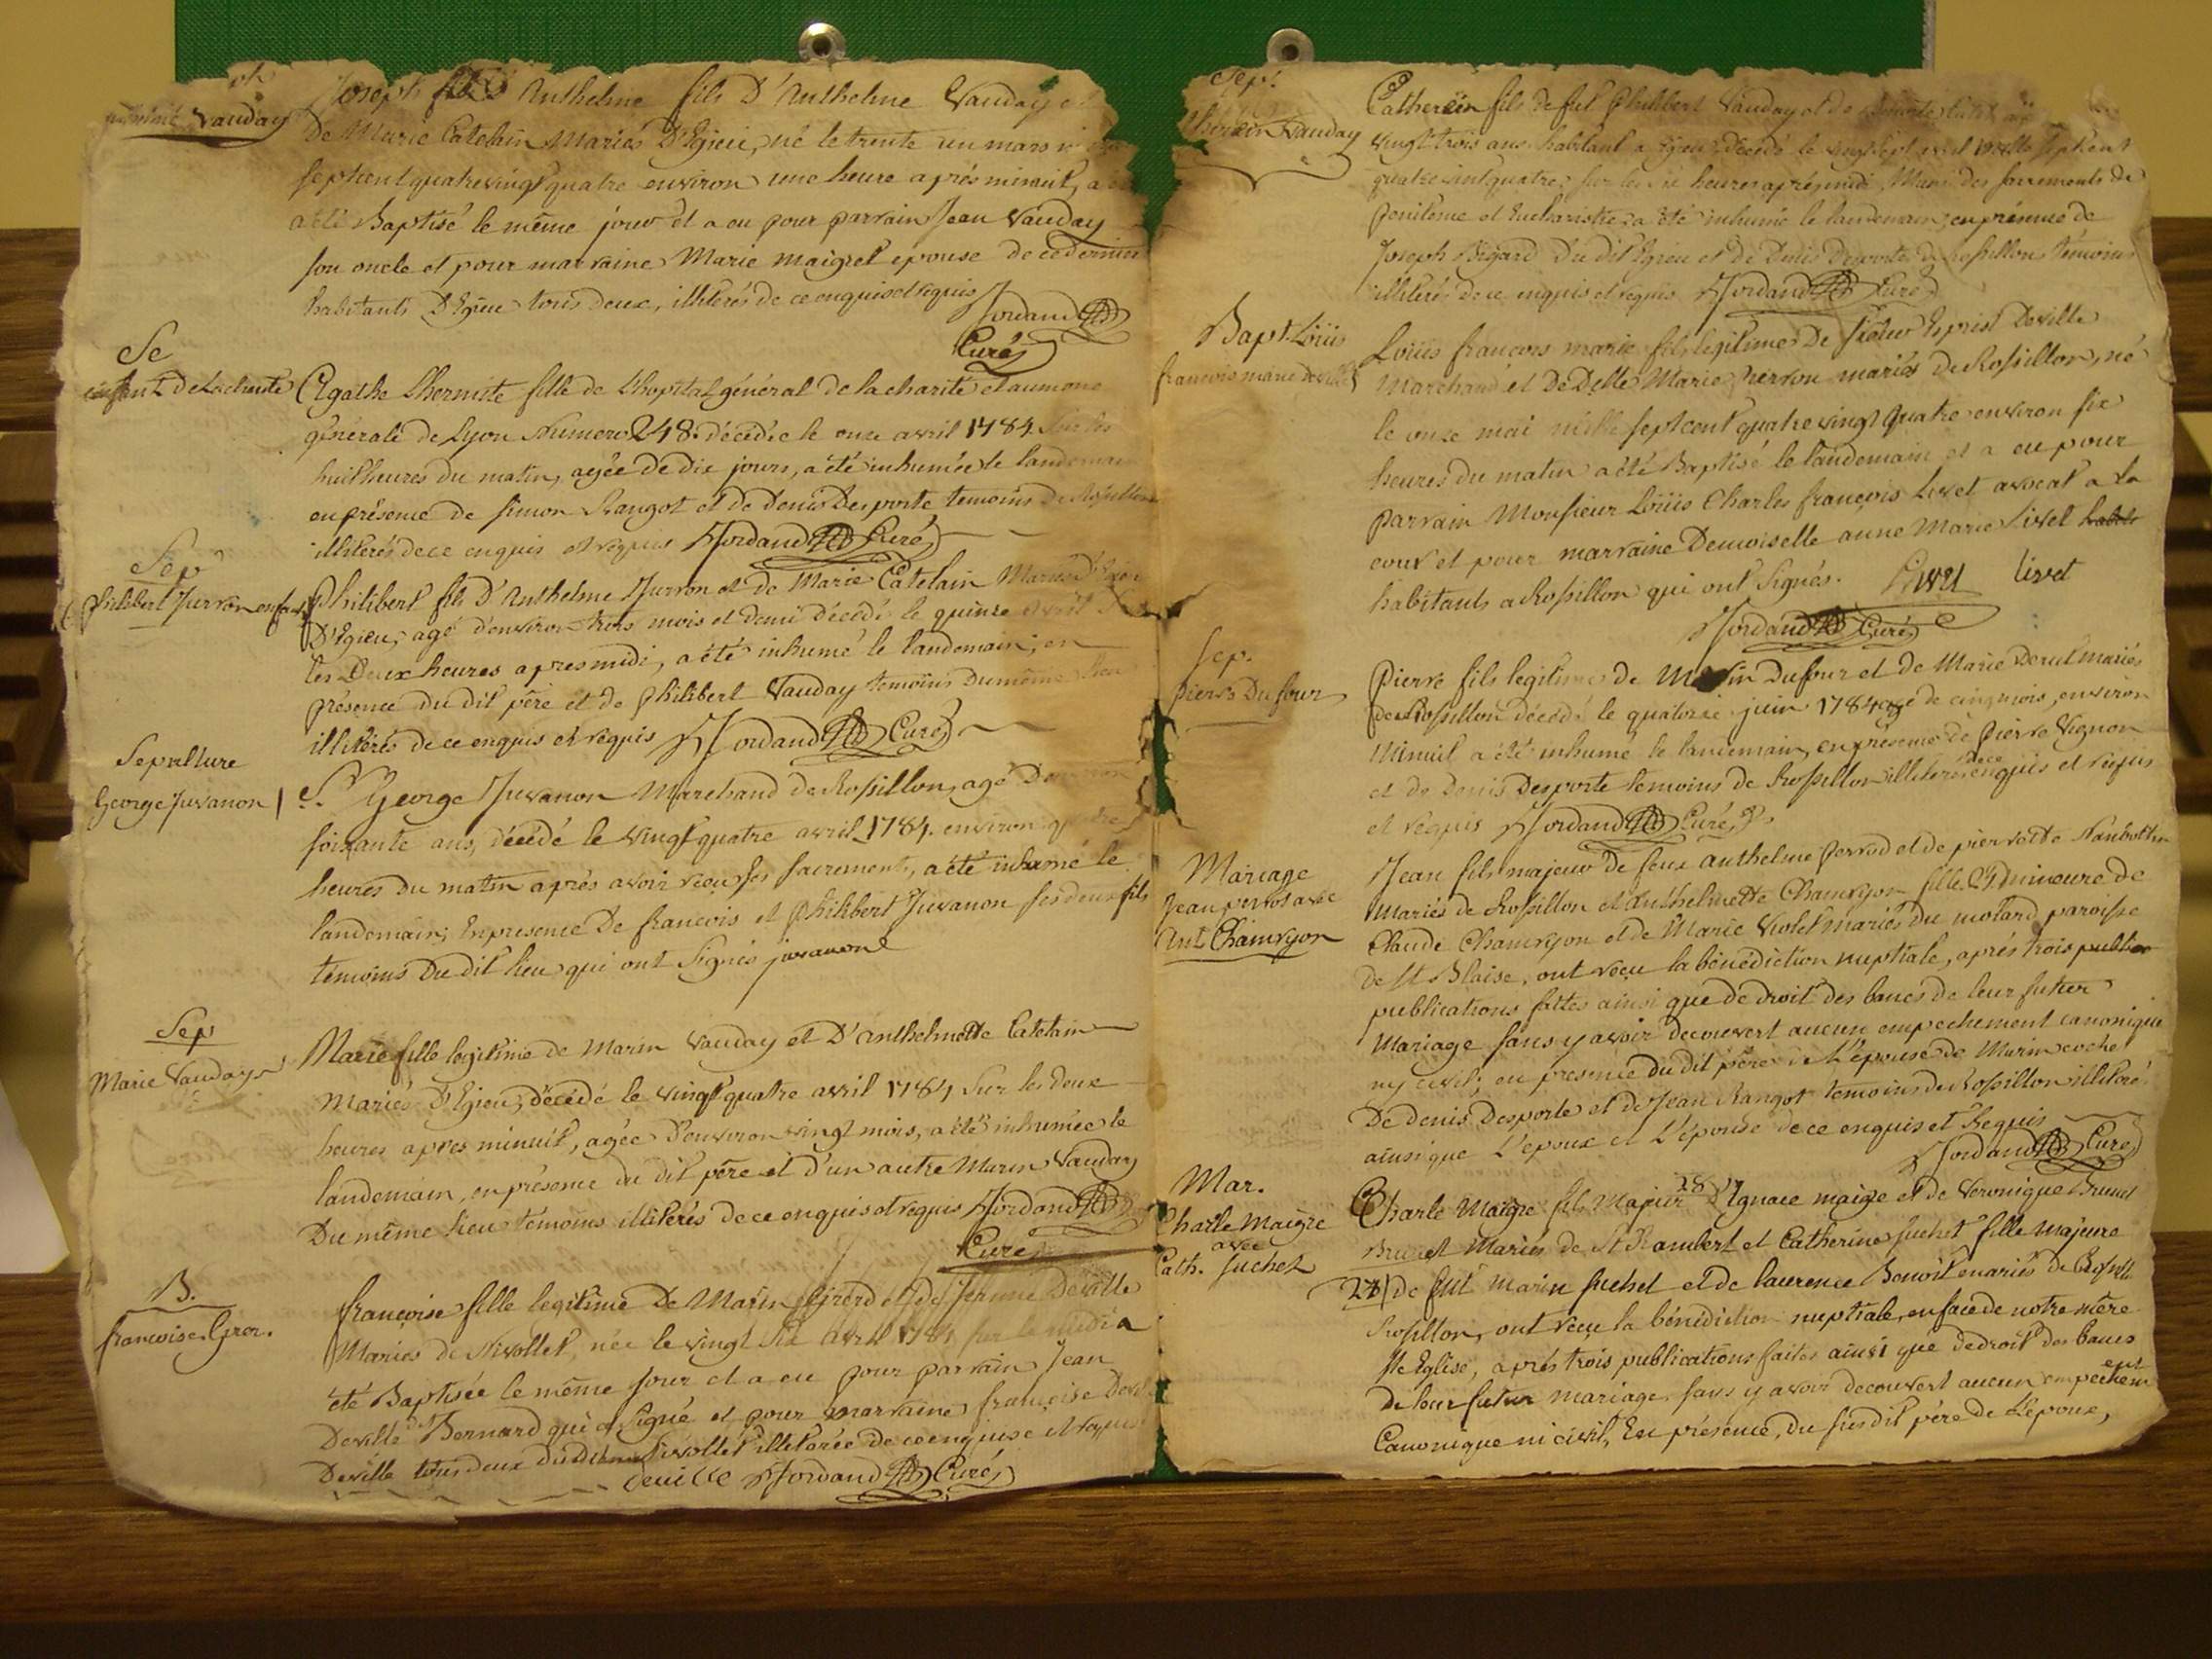 Vauday
Joseph fils d'Anthelme fils D'Anthelme Vauday et
De Marie Catelain Mariés D'Egieu, né le trente un mars
septcent quatrevingt quatre environ une heure aprés minuit, a
a été Baptisé le même jour et a eu pour parrain Jean Vauday
son oncle et pour marraine Marie maigret epouse de ce dernier
habitants D'Egieu tous deux, illiterés de ce enquis et requis Jordand
Curé
Se
enfant de la charité
Agathe Lhermite fille de L'hopital général de la charité et aumone
générale de Lyon Numero 248. décédée le onze avril 1784. sur les
huit heures du matin, agée de dix jours, a été inhumée le landemain
en présence de simon Rangot et de Denis Desporte temoins de Rossillon
illiterés de ce enquis et requis Jordand Curé
Sep
Philibert Jurron enfant
Philibert fils D'Anthelme Jurron et de Marie Catelain Mariés D'Egieu
D'Egieu, agé d'environ trois mois et demi décédé le quinze avril
les Deux heures apres midi, a été inhumé le landemain; en
présence du dit père et de philibert Vauday temoins du même lieu
illiterés de ce enquis et requis Jordand Curé
Sepulture
George Juvanon
Sr George Juvanon Marchand de Rossillon, agé D'environ
soixante ans, décédé le vingt quatre avril 1784. environ quatre
heures du matin aprés avoir reçu ses sacrements, a été inhumé le
landemain; En presence De françois et Philibert Juvanon ses deux fils
temoins Du dit lieu qui ont signés juvanon
Sep
Marie Vauday
Marie fille legitime de Marin Vauday et D'Anthelmette Catelain
Mariés D'Egieu, décédé le vingt quatre avril 1784 sur les deux
heures apres minuit, agée d'environ vingt mois, a été inhumée le
landemain, en présence du dit père et d'un autre Marin Vauday
Du même lieu temoins illiterés de ce enquis et requis Jordand
Curé
B.
francoise Gror.
françoise fille legitime De Marin et de Jeanne Deville
Mariés de Nivollet, née le vingt six avril 1784 sur le midi a
été Baptisée le même jour et a eu pour parrain Jean
Deville dt Bernard qui a signé et pour marraine françoise
Deville tous deux du dit Nivollet illiterée de ce enquise et requise
deville Jordand Curé
Sep.
Vauday
Catherin fils de fut philibert Vauday et de
vingt trois ans habitant a Egieu décédé le vingt sept avril mille septcent
quatre vint quatre sur les heures aprés midi, Muni des sacrements de
penitence et Eucharistie a été inhumé le landemain, en présence de
Joseph Du dit Egieu et de Denis Desporte de Rossillon temoins
illiterés de ce enquis et requis Jordand Curé
Bapt. Loüis
francois marie deville
Loüis francois marie fils legitime De sieur Esprist Deville
Marchand et De Delle Marie pierron mariés de Rossillon, né
le onze mai mille septcent quatre vingt quatre environ six
heures du matin a été Baptisé le landemain et a eu pour
parrain Monsieur Loüis Charles françois Livet avocat a la
cour et pour marraine Demoiselle anne Marie Livet habit
habitants a Rossillon qui ont signés. Livet livet
Jordand Curé
Sep.
pierre Dufour
Pierre fils legitime de Marin Dufour et de Marie mariés
de Rossillon décédé le quatorze juin 1784 agé de cinq mois, environ
Minuit a été inhumé le landemain, en présence de pierre Vignon
et de Denis Desporte temoins de Rossillon illiterés de ce enquis et requis
et requis Jordand Curé
Mariage
Jean perrod avec
Ant. Chamvyon
Jean fils majeur de feux anthelme perrod et de pierrette
Mariés de Rossillon et Anthelmette Chamvyon fille mineure de
Claude Chamvyon et de Marie Violet mariés du molard paroisse
de St Blaise, ont reçu la bénédiction nuptiale, aprés trois publica
publications faites ainsi que de droit des bancs de leur futur
Mariage sans y avoir decouvert aucun empechement canonique
ny civil; en presence du dit père de L'epouse de Marin coche
De denis desporte et de Jean Rangot temoins de Rossillon illiterés
ainsi que L'epoux et L'épouse de ce enquis et Requis
Jordand Curé
Mar.
Charle Maigre
avec
Cath. Juchet
Charle Maigre fils Majeur 28 D'Ignace maigre et de Veronique Brunet
Brunet Mariés de St Rambert et Catherine Juchet fille Majeure
27 de fut marin Juchet et de laurence Benoit mariés de Rossill
Rossillon, ont reçu la bénédiction nuptiale, en face de notre mère
Ste Eglise, aprés trois publications faites ainsi que de droit des bancs
de leur futur mariage. sans y avoir decouvert aucun empechement
Canonique ni civil, En présence, du susdit père de L'epoux,